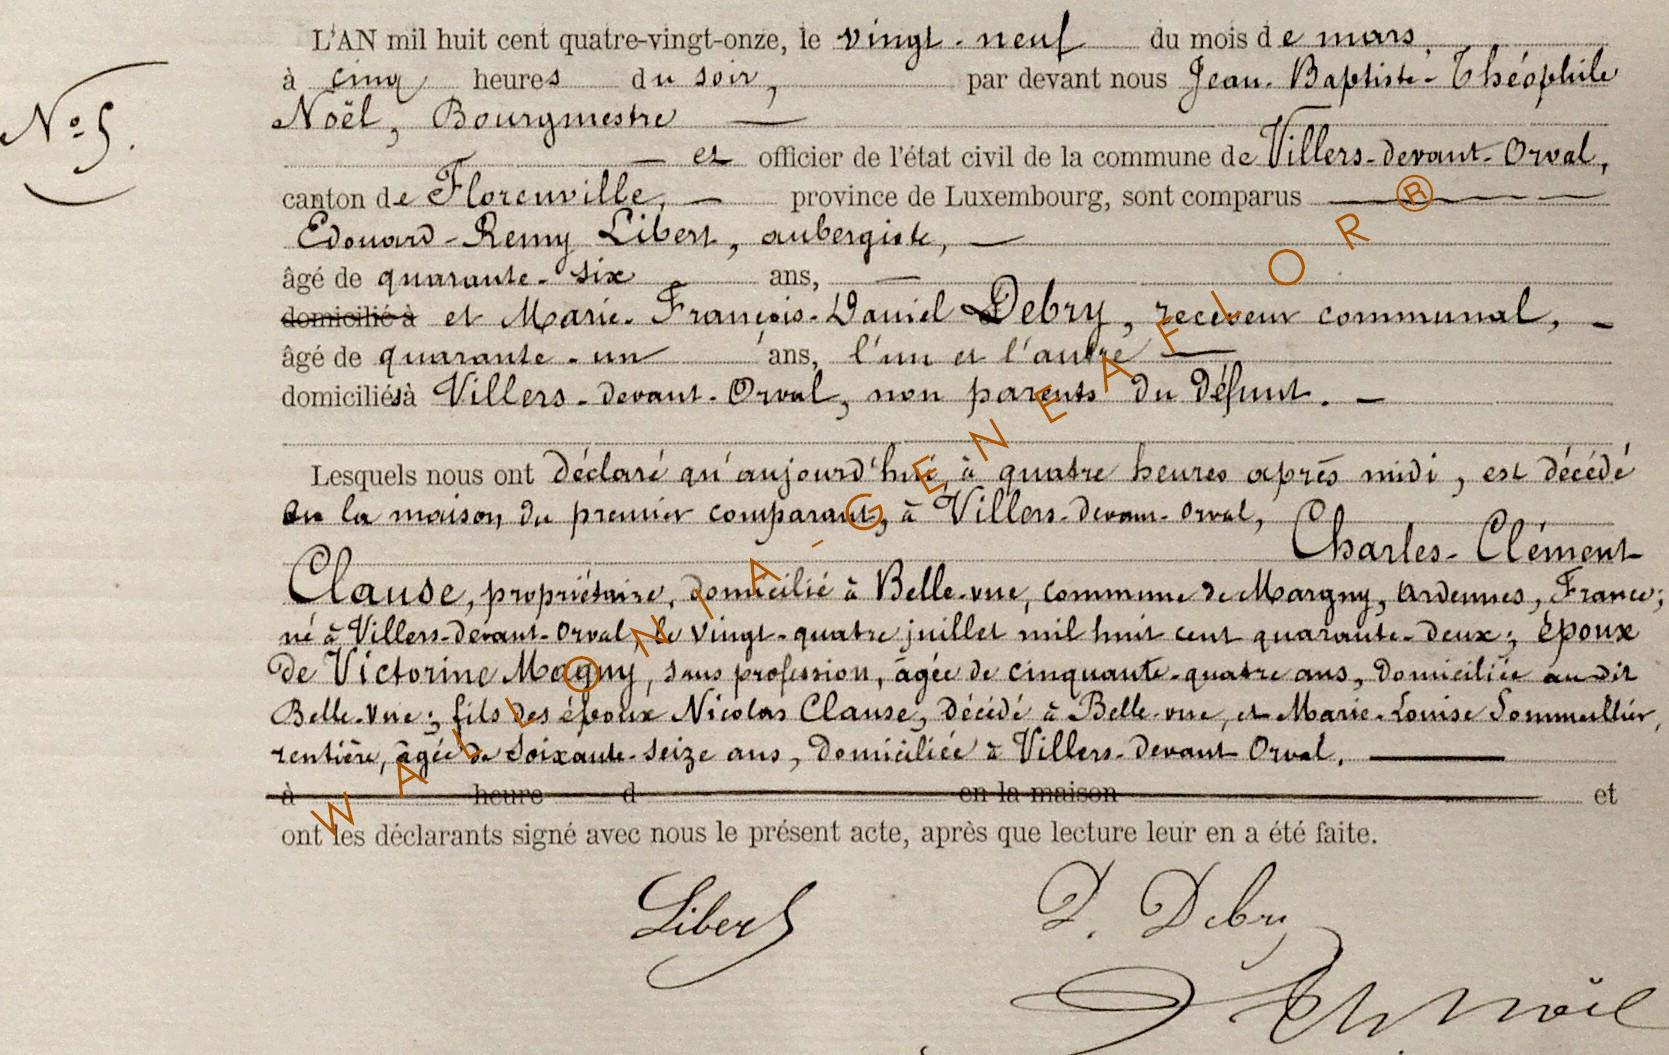 L'AN mil huit cent quatre-vingt-onze, le vingt-neuf du mois de mars,
à cinq heures du soir, par devant nous Jean-Baptiste-Théophile
Nº 5.
Noël, Bourgmestre —
— et officier de l'état civil de la commune de Villers-devant-Orval,
canton de Florenville, — province de Luxembourg, sont comparus —
Edouard-Remy Libert, aubergiste, —
âgé de quarante-six ans, —
domicilié à et Marie-François-Daniel Debry, receveur communal, —
âgé de quarante-un ans, l'un et l'autre —
domiciliés à Villers-devant-Orval, non parents du défunt. —
Lesquels nous ont déclaré qu'aujourd'hui, à quatre heures après midi, est décédé
en la maison du premier comparant, à Villers-devant-Orval, Charles-Clément
Clause, propriétaire, domicilié à Belle-vue, commune de Margny, Ardennes, France;
né à Villers-devant-Orval, le vingt-quatre juillet mil huit cent quarante-deux; époux
de Victorine Magny, sans profession, âgée de cinquante-quatre ans, domiciliée au dit
Belle-vue; fils des époux Nicolas Clause, décédé à Belle-vue, et Marie-Louise Sommeillier,
rentière, âgée de soixante-seize ans, domiciliée à Villers-devant Orval. —
à heure d en la maison et
ont les déclarants signé avec nous le présent acte, après que lecture leur en a été faite.
Libert D. Debry
Th Noël
WALLONIA-GENEAFLOR®